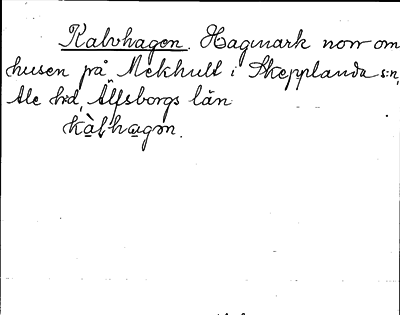 Kalvhagen. Hagmark norr om
husen på Mekhult i Skepplanda s:n,
Ale hd, Älfsborgs län
kàlhagən.